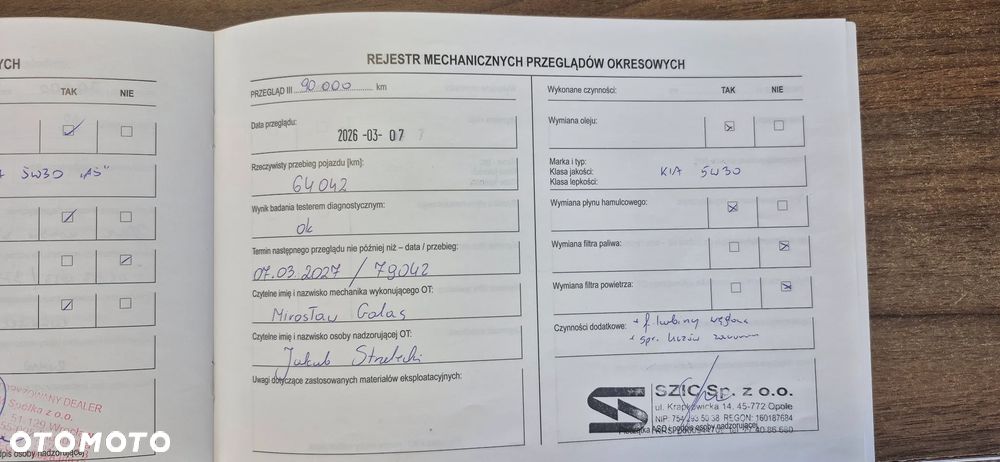 YCH
TAK NIE
5W30 "A5"
REJESTR MECHANICZNYCH PRZEGLĄDÓW OKRESOWYCH
PRZEGLĄD III 90 000 km
Data przeglądu:
2026-03-07
Rzeczywisty przebieg pojazdu [km]:
64042
Wynik badania testerem diagnostycznym:
ok
Termin następnego przeglądu nie później niż – data / przebieg:
07.03.2027 / 79042
Czytelne imię i nazwisko mechanika wykonującego OT:
Mirosław Galas
Czytelne imię i nazwisko osoby nadzorującej OT:
Jakub Strzelecki
Uwagi dotyczące zastosowanych materiałów eksploatacyjnych:
Wykonane czynności: TAK NIE
Wymiana oleju:
Marka i typ:
Klasa jakości: KIA 5W30
Klasa lepkości:
Wymiana płynu hamulcowego:
Wymiana filtra paliwa:
Wymiana filtra powietrza:
Czynności dodatkowe: + f. kabiny węglowy
+ spr.
SZIC Sp. z o.o.
ul. Krapkowicka 14, 45-772 Opole
REGON: 160187684
podpis osoby nadzorującej
DEALER
Spółka z o.o.
OTOMOTO
dpis osoby nadzorującej